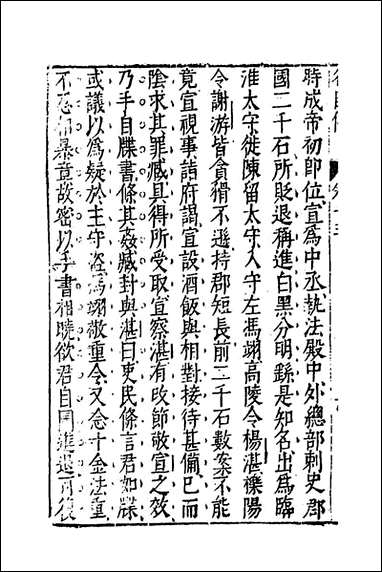 時成帝初即位宣爲中丞執法殿中外總部刺史郡
國二千石所貶退稱進白黑分明繇是知名出爲臨
淮太守徙陳留太守入守左馮翊高陵令楊湛櫟陽
令謝游皆貪猾不遜持郡短長前二千石數案不能
竟宣視事詣府謁宣設酒飯與相對接待甚備已而
陰求其罪臧具得所受取宣察湛有改節敬宣之效
乃手自牒書條其姦臧封與湛曰吏民條言君如牒
或議以爲疑於主守盜馮翊敬重令又念十金法重
不忍相暴章故密以手書相曉欲君自圖進退可復